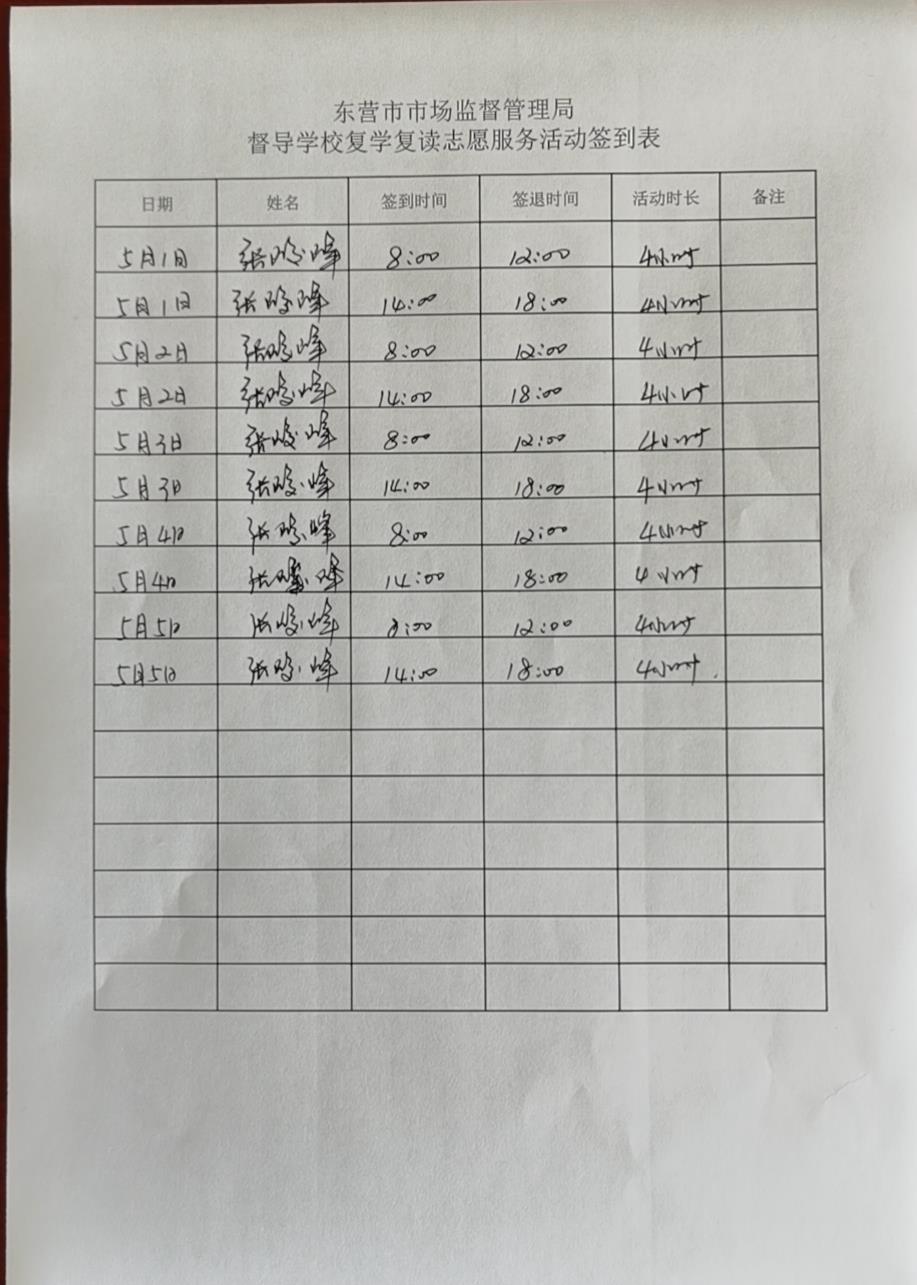 东营市市场监督管理局
督导学校复学复读志愿服务活动签到表
日期 姓名 签到时间 签退时间 活动时长 备注
5月1日 张 峰 8:00 12:00 4小时
5月1日 张 峰 14:00 18:00 4小时
5月2日 张 峰 8:00 12:00 4小时
5月2日 张 峰 14:00 18:00 4小时
5月3日 张 峰 8:00 12:00 4小时
5月3日 张 峰 14:00 18:00 4小时
5月4日 张 峰 8:00 12:00 4小时
5月4日 张 峰 14:00 18:00 4小时
5月5日 张 峰 8:00 12:00 4小时
5月5日 张 峰 14:00 18:00 4小时